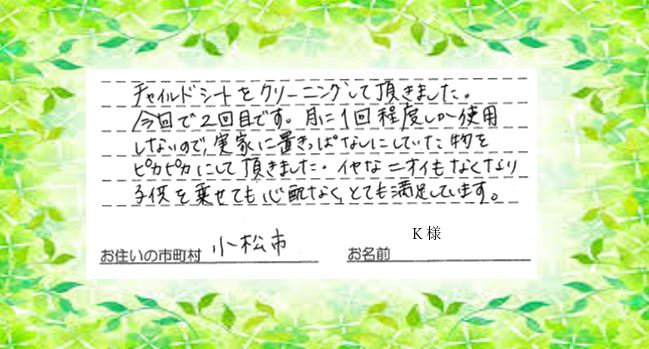 チャイルドシートをクリーニングして頂きました。
今回で2回目です。月に1回程度しか使用
しないので、実家に置きっぱなしにしていた物を
ピカピカにして頂きました。イヤなニオイもなくなり
子供を乗せても心配なく、とても満足しています。
お住いの市町村 小松市
お名前 K様